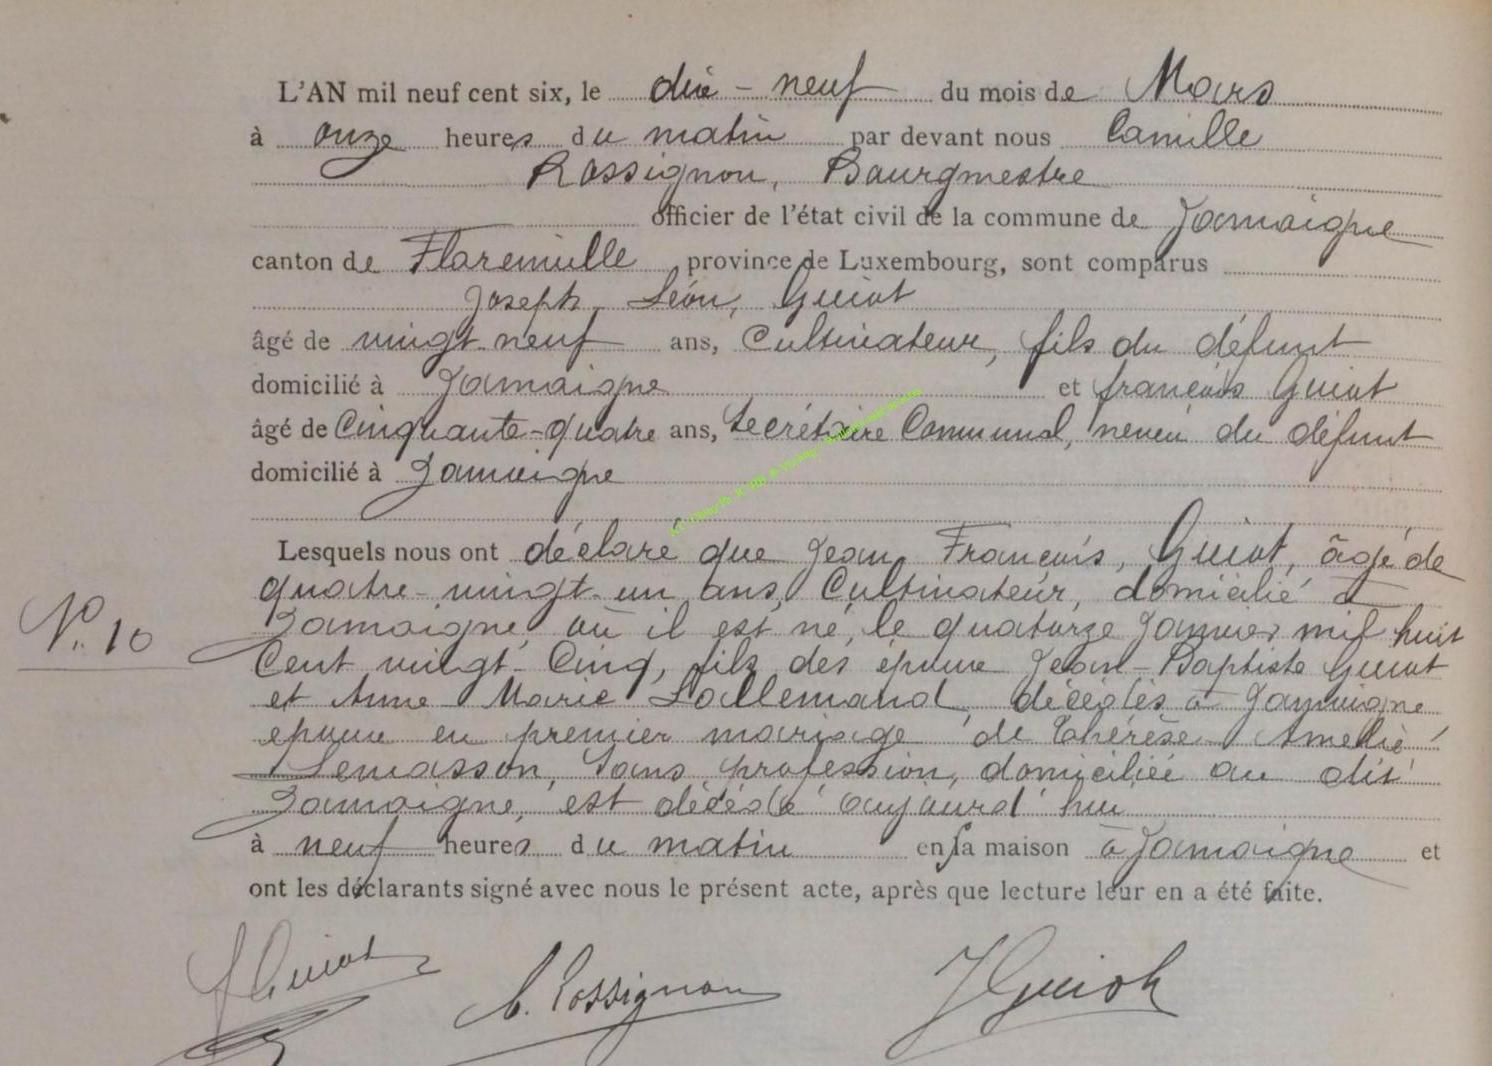 L'AN mil neuf cent six, le dix-neuf du mois de Mars
à onze heures du matin par devant nous Camille
Rossignon, Bourgmestre
officier de l'état civil de la commune de Jamoigne
canton de Florenville province de Luxembourg, sont comparus
Joseph Léon, Guiot
âgé de vingt neuf ans, Cultivateur, fils du défunt
domicilié à Jamoigne et françois Guiot
âgé de Cinquante-quatre ans, Secrétaire Communal, neveu du défunt
domicilié à Jamoigne
Lesquels nous ont déclaré que Jean François, Guiot, âgé de
quatre-vingt-un ans, Cultivateur, domicilié à
N°. 10
Jamoigne, où il est né, le quatorze Janvier mil huit
Cent vingt-Cinq, fils des époux Jean-Baptiste Guiot
et Anne Marie Lallemand, décédés à Jamoigne
époux en premier mariage de Thérèse Amélie
Lemasson, Sans profession, domiciliée au dit
Jamoigne, est décédé aujourd'hui
à neuf heures du matin en sa maison à Jamoigne et
ont les déclarants signé avec nous le présent acte, après que lecture leur en a été faite.
f Guiot C. Rossignon J Guiot